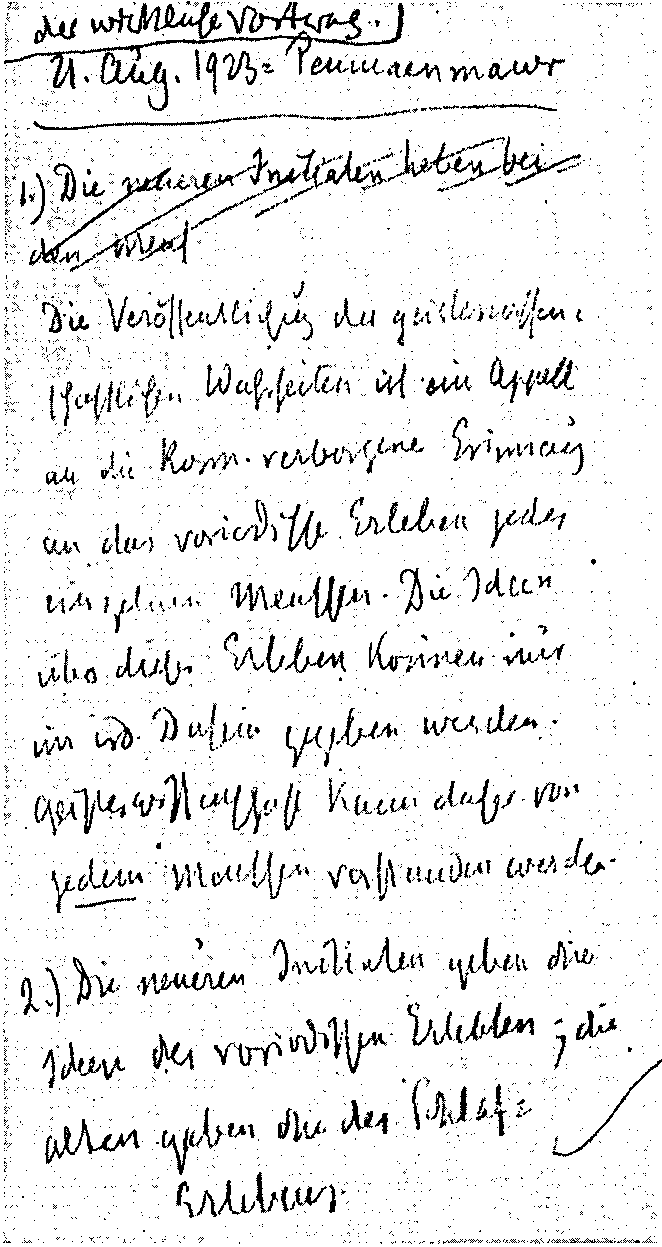 der wirkliche Vortrag.)
21. Aug. 1923 = Penmaenmawr
1.) Die neueren Initiaten heben bei
den Mens
Die Veröffentlichung der geisteswissen-
schaftlichen Wahrheiten ist ein Appell
an die verborgene Erinnerung
an das vorirdische Erleben jedes
einzelnen Menschen. Die Ideen
über dieses Erleben können nur
im ird. Dasein gegeben werden.
Geisteswissenschaft kann daher von
jedem Menschen verstanden werden.
2.) Die neueren Initiaten geben die
Ideen des vorirdischen Erlebten -; die
alten gaben die des Schlaf=
Erlebens.